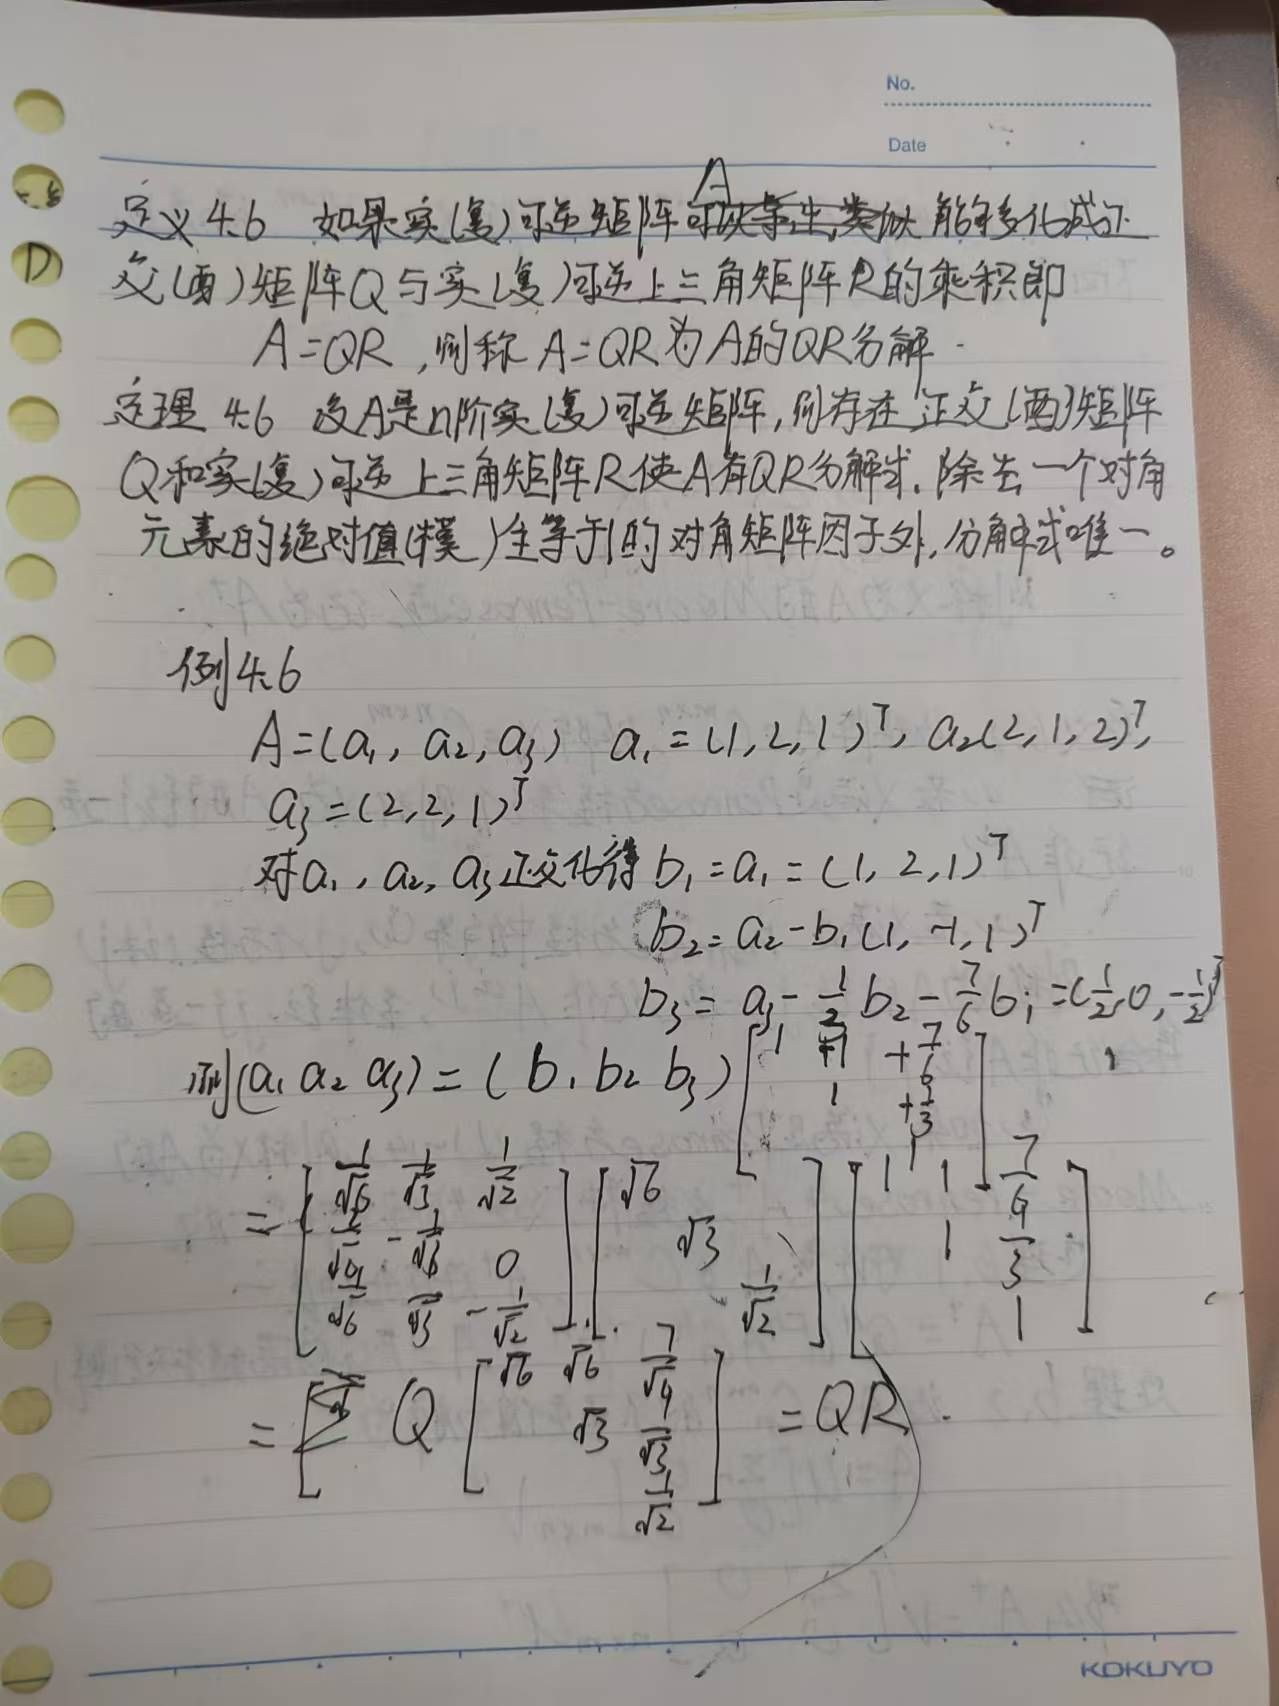 No.
Date
定义4.6 如果实(复)可逆矩阵A能够多化成正
交(酉)矩阵Q与实(复)可逆上三角矩阵R的乘积即
A=QR,则称A=QR为A的QR分解.
定理4.6 设A是n阶实(复)可逆矩阵,则存在正交(酉)矩阵
Q和实(复)可逆上三角矩阵R使A有QR分解式.除去一个对角
元素的绝对值(模)全等于1的对角矩阵因子外,分解式唯一。
例4.6
A=(a₁, a₂, a₃) a₁=(1,2,1)ᵀ, a₂(2,1,2)ᵀ,
a₃=(2,2,1)ᵀ
对a₁,a₂,a₃正交化得 b₁=a₁=(1,2,1)ᵀ
b₂=a₂-b₁(1,-1,1)ᵀ
b₃=a₃-1/2 b₂-7/6 b₁=(1/2,0,-1/2)ᵀ
则(a₁ a₂ a₃)=(b₁ b₂ b₃)[1 +1 +7/6
1 +1/3
1]
=[1/√6 1/√3 1/√2
-1/√3 0
1/√3 -1/√2][√6
√3
1/√2][1 1 7/6
1 1/3
1]
=[ Q [√6 √6 7/√6
√3 1/√3
1/√2] =QR.
KOKUYO